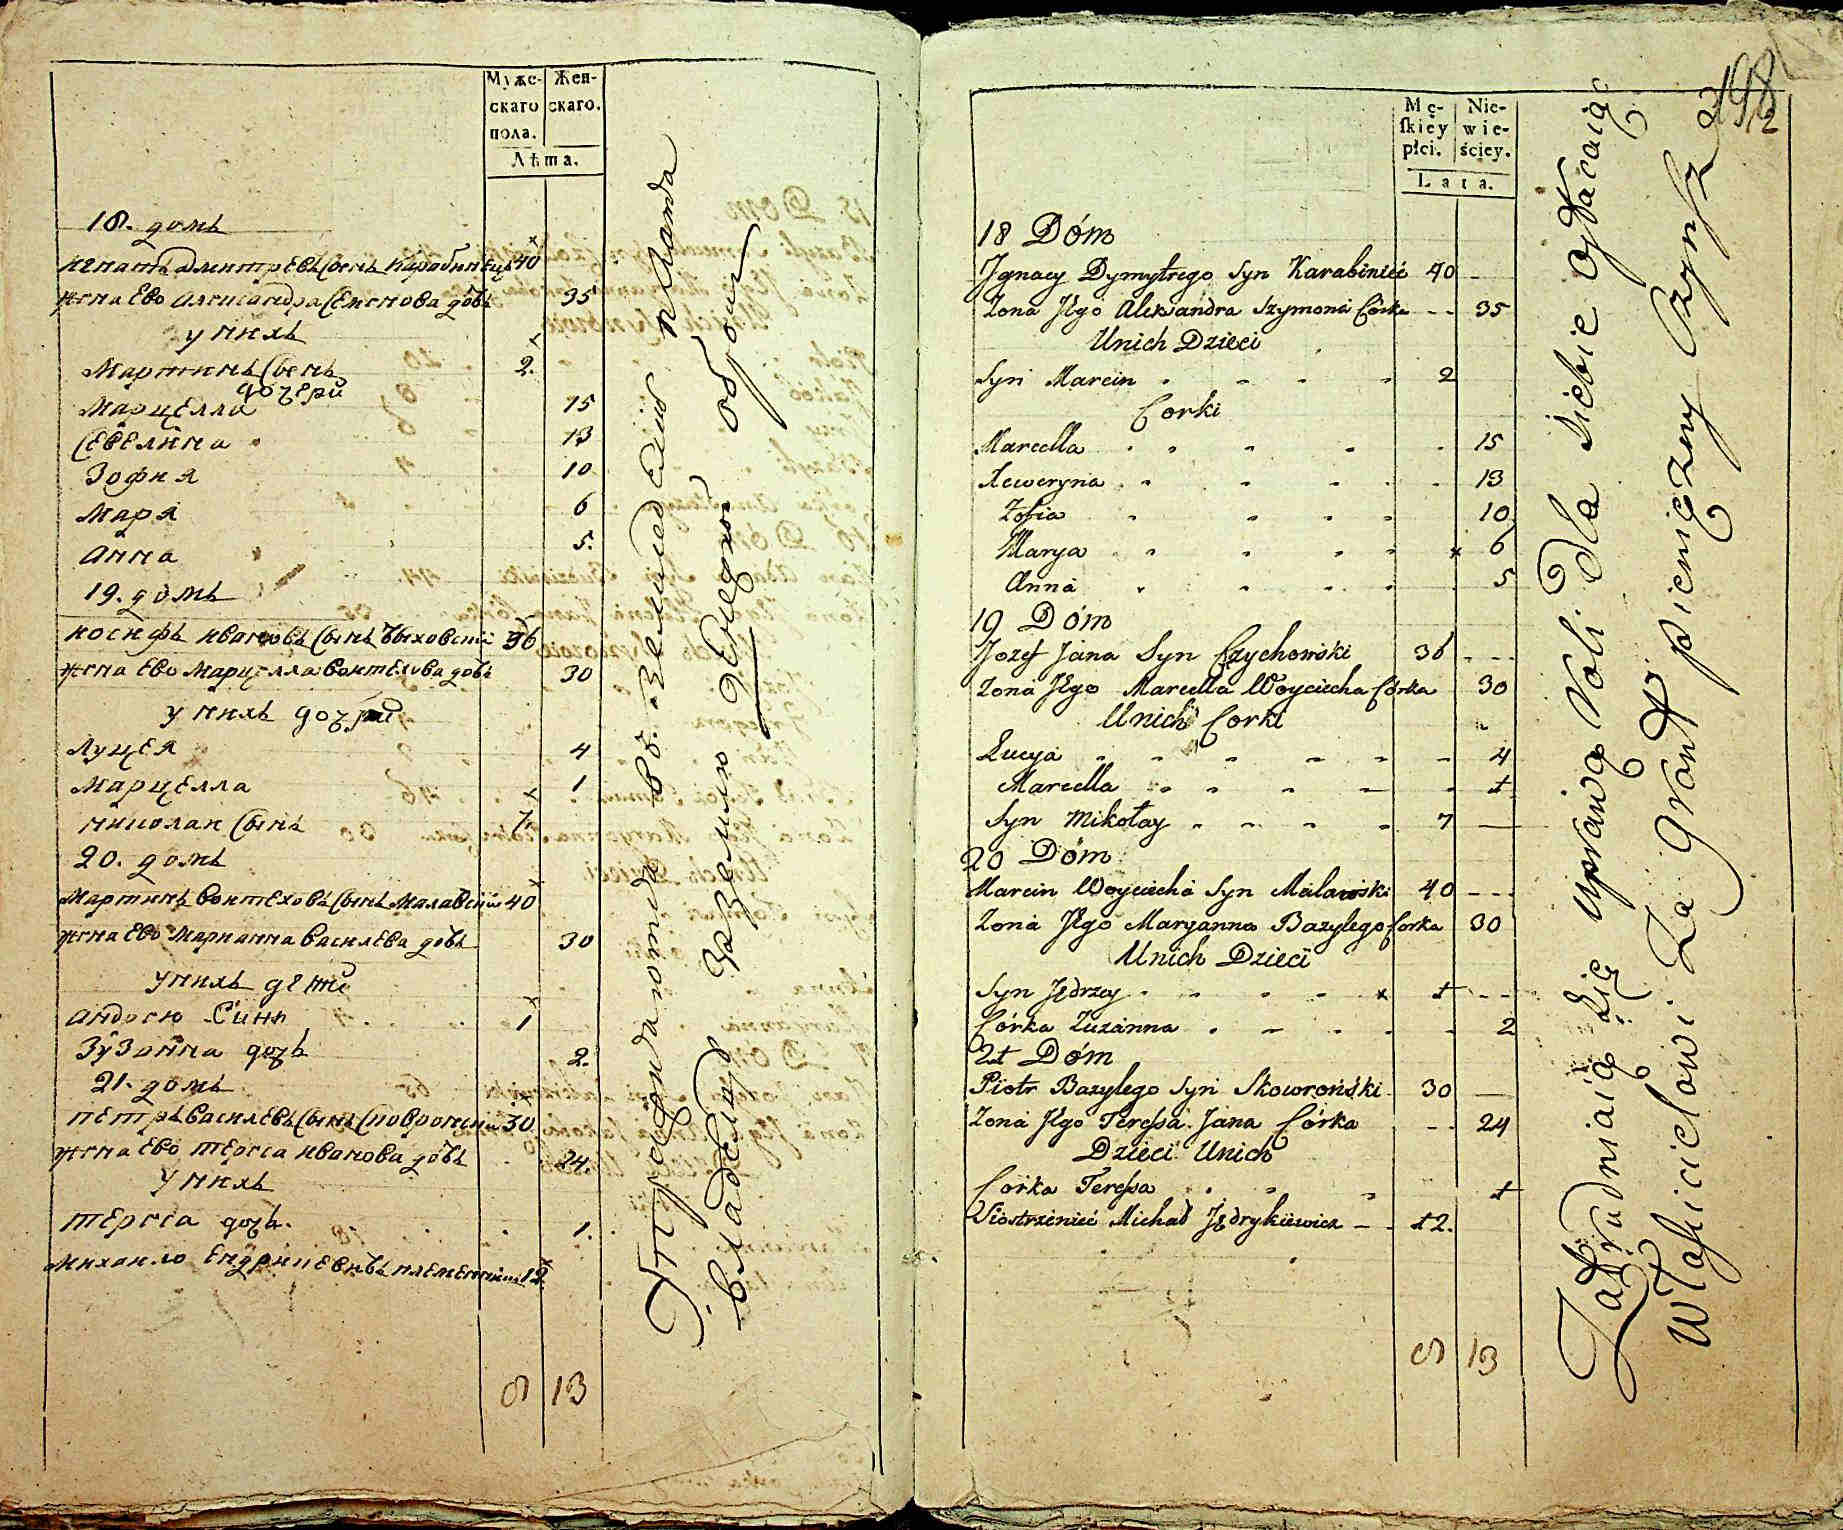 Мужс-
скаго
пола.
Жен-
скаго.
Лѣта.
18. домъ
Игнатъ Дмитріевъ сынъ Карабинецъ 40
жена Ево Александра Семенова дочь 35
у нихъ
Мартинъ сынъ 2.
дочери
Марцелла 15
Севелина 13
Зофия 10
Маря 6
Анна 5.
19. домъ
Иосифъ Ивановъ сынъ 36
жена Ево Марцелла Войтехова дочь 30
у нихъ дочери
Луцея 4
Марцелла 1
Николай сынъ 7.
20. домъ
Мартинъ Войтеховъ сынъ Малавскій 40
жена Ево Марианна Василева дочь 30
у нихъ дети
Андрею Синъ 1
Зузанна дочь 2.
21. домъ
Петръ Василевъ сынъ Сковронскій 30
жена Ево Тереса Иванова дочь 24.
у нихъ
Тереса дочь. 1.
Михайло племенникъ 12
9 13
владельцу за землю денежной оброкъ
198
Mę-
skiéy
płci.
Nie-
wie-
ściey.
Lata.
18 Dóm
Jgnacy Dymytrego Syn Karabinieć 40 -
Zona Jego Alexandra Szymona Córka - - 35
Unich Dzieci
Syn Marcin 2
Corki
Marcella 15
Seweryna 13
Zofia 10
Marya x 6
Anna 5
19 Dóm
Jozef Jana Syn Czychowski 36 - - -
Zona Jego Marcella Woyciecha Córka 30
Unich Corki
Lucya 4
Marcella 1
Syn Mikołay 7 —
20 Dóm
Marcin Woyciecha Syn Malawski 40 - - -
Zona Jego Maryanna Bazylego Corka 30
Unich Dzieci
Syn Jędrzey x 1 - -
Córka Zuzanna 2
21 Dóm
Piotr Bazylego Syn Skowroński 30 —
Zona Jego Teressa Jana Córka - - 24
Dzieci Unich
Corka Teressa 1
Siostrzenieć Michał Jędrykiewicz 12.
9 13
Zatrudniaią Się uprawą Roli dla siebie opłacaiąc
Właścicielowi Za Gront pieniężny Czynsz